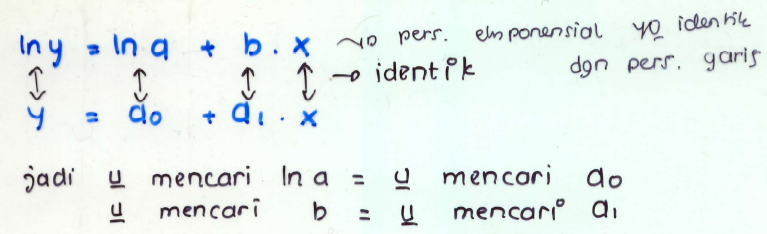 ln y = ln a + b . x → pers. eksponensial yg identik dgn pers. garis
↕ ↕ ↕ ↕ → identik
y = a₀ + a₁ . x
jadi u mencari ln a = u mencari a₀
u mencari b = u mencari a₁